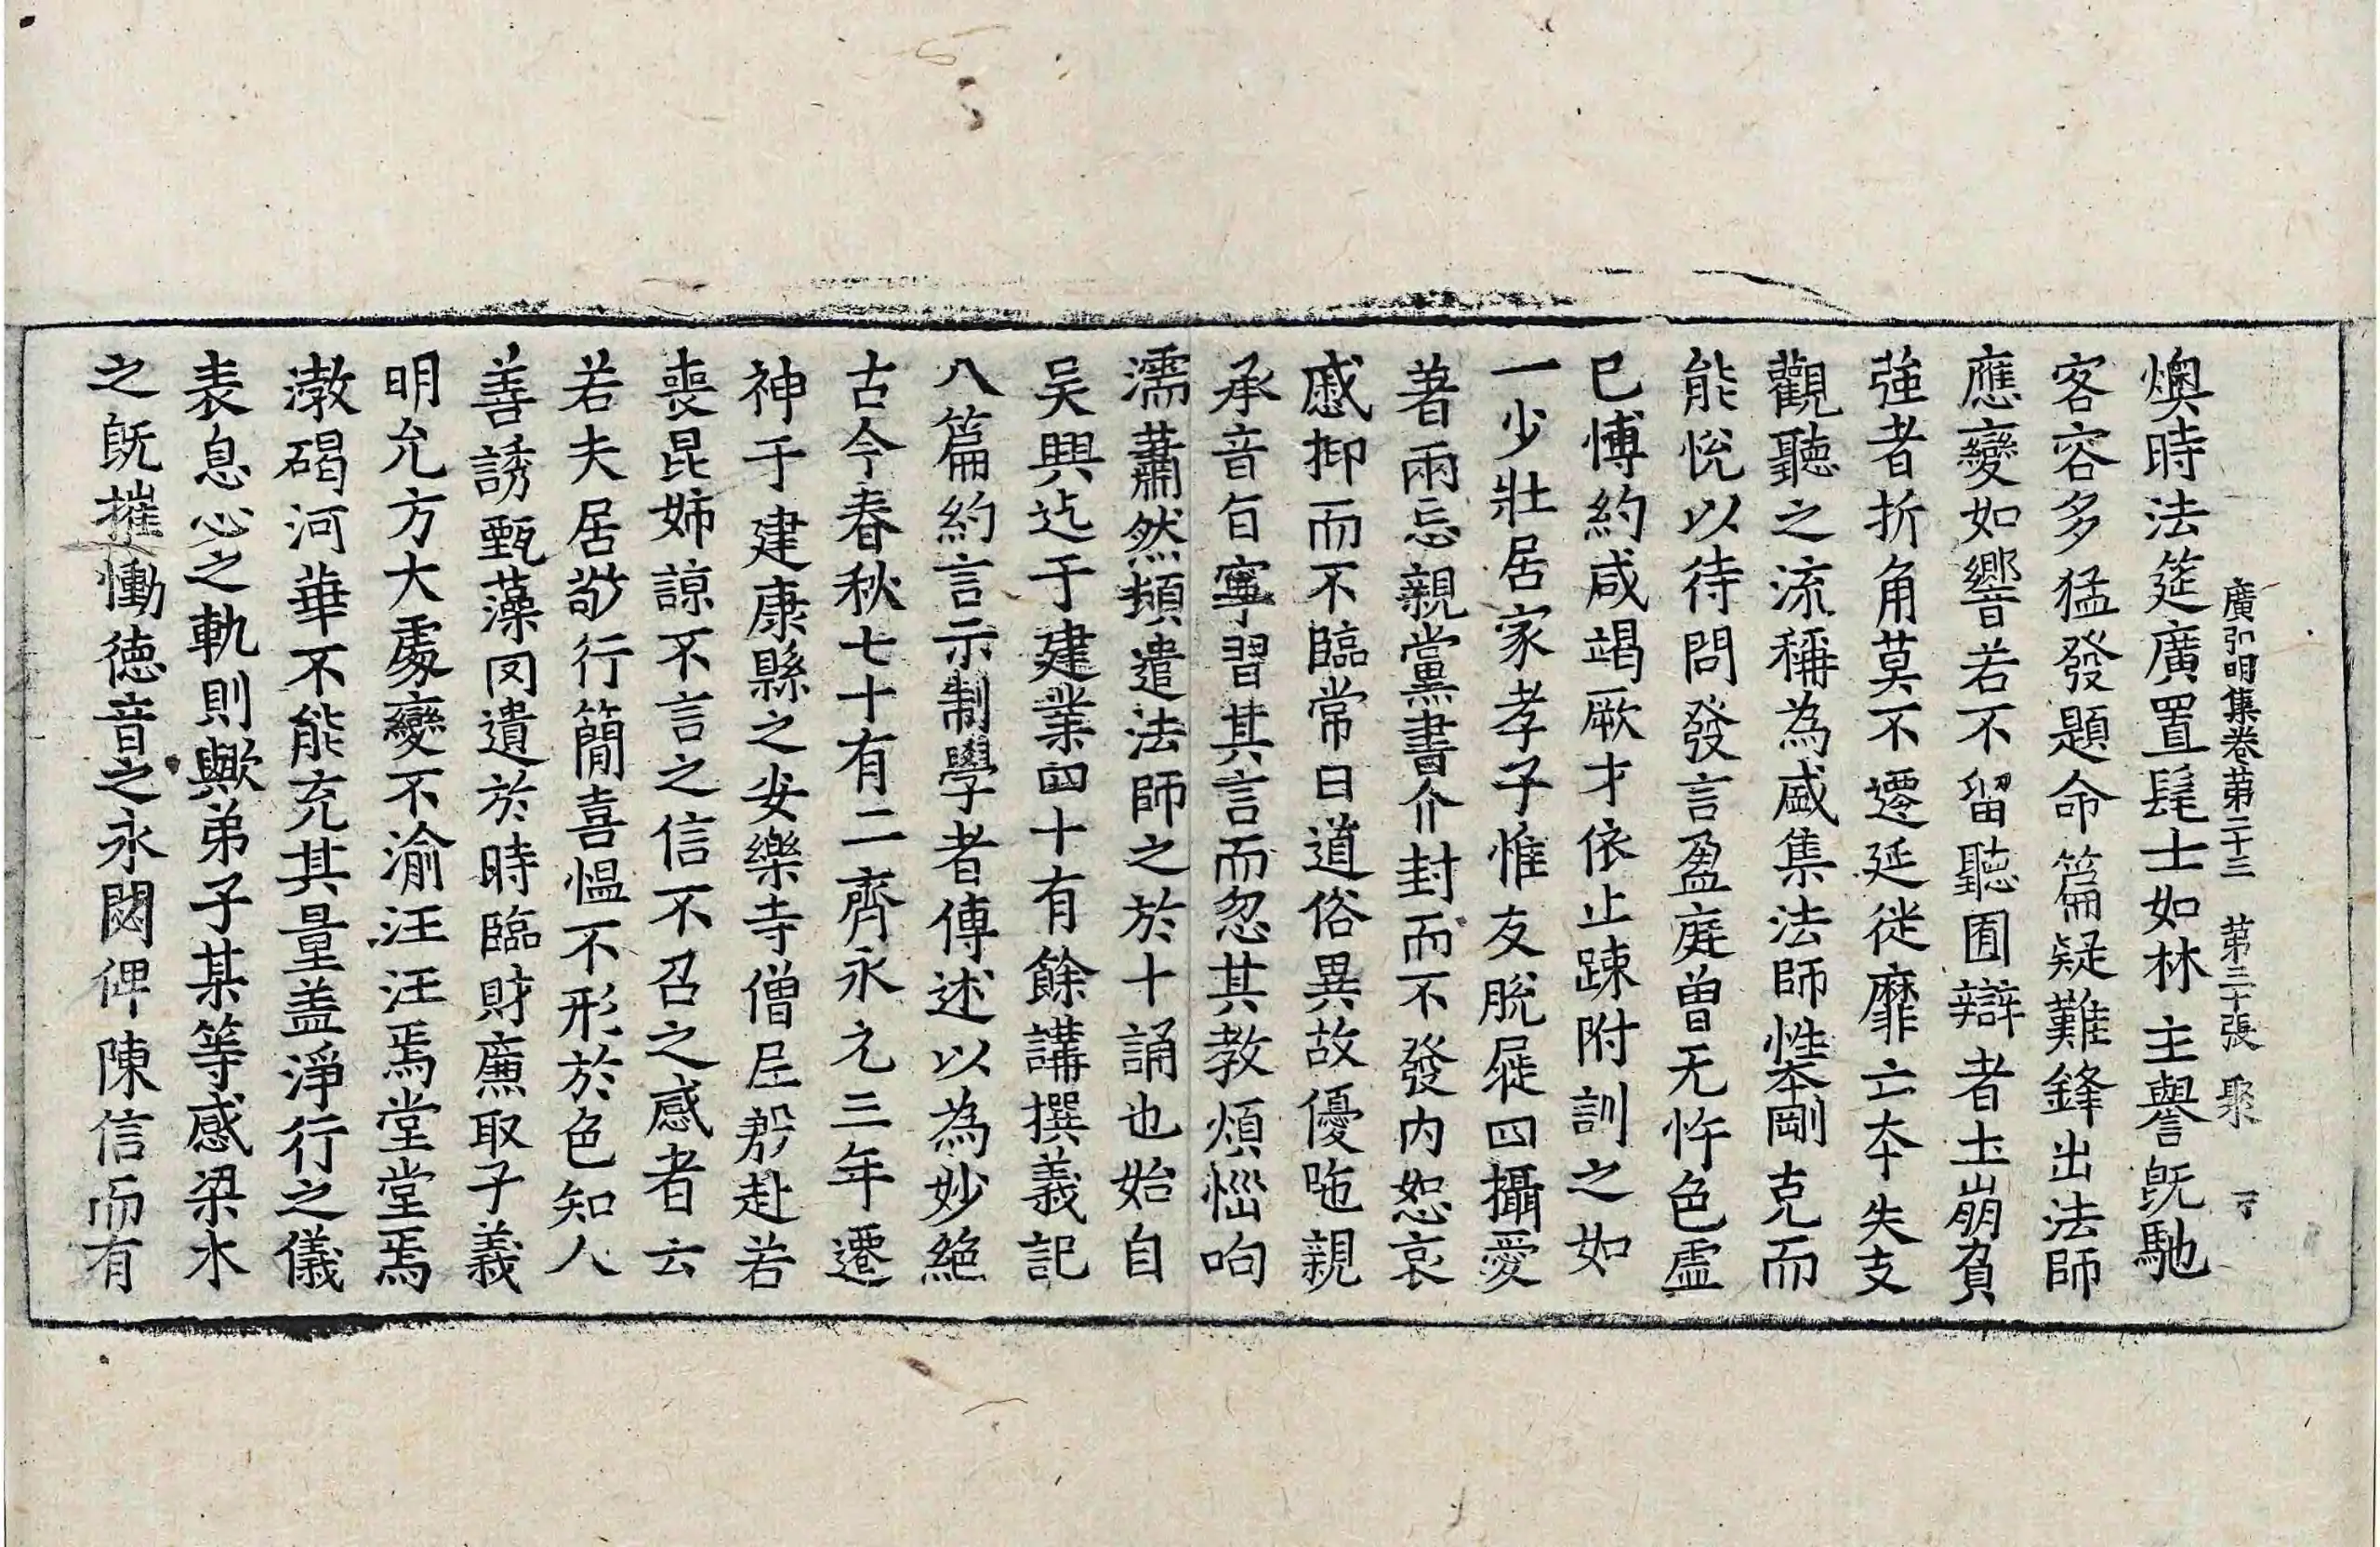 廣弘明集卷第二十三　第三十張　聚
燠時法筵廣置髦士如林主譽旣馳
客容多猛發題命篇疑難鋒出法師
應變如響若不留聽囿辯者土崩負
強者折角莫不遷延徙靡亡夲失支
觀聽之流稱為盛集法師性夲剛克而
能悅以待問發言盈庭曾无忤色虛
已博約咸竭厥才依止踈附訓之如
一少壯居家孝子惟友脫屣四攝愛
著兩忘親黨書介封而不發内恕哀
慼抑而不臨常日道俗異故優陁親
承音旨寧習其言而忽其教煩惱呴
濡蕭然頻遣法師之於十誦也始自
吴興迄于建業四十有餘講撰義記
八篇約言示制學者傳述以為妙絕
古今春秋七十有二齊永元三年遷
神于建康縣之安樂寺僧尼殷赴若
喪昆姊諒不言之信不召之感者云
若夫居敬行簡喜愠不形於色知人
善誘甄藻罔遺於時臨財廉取予義
明允方大處變不渝汪汪焉堂堂焉
渤碣河華不能充其量盖淨行之儀
表息心之軌則歟弟子某等感梁木
之旣摧慟德音之永閟俾陳信而有